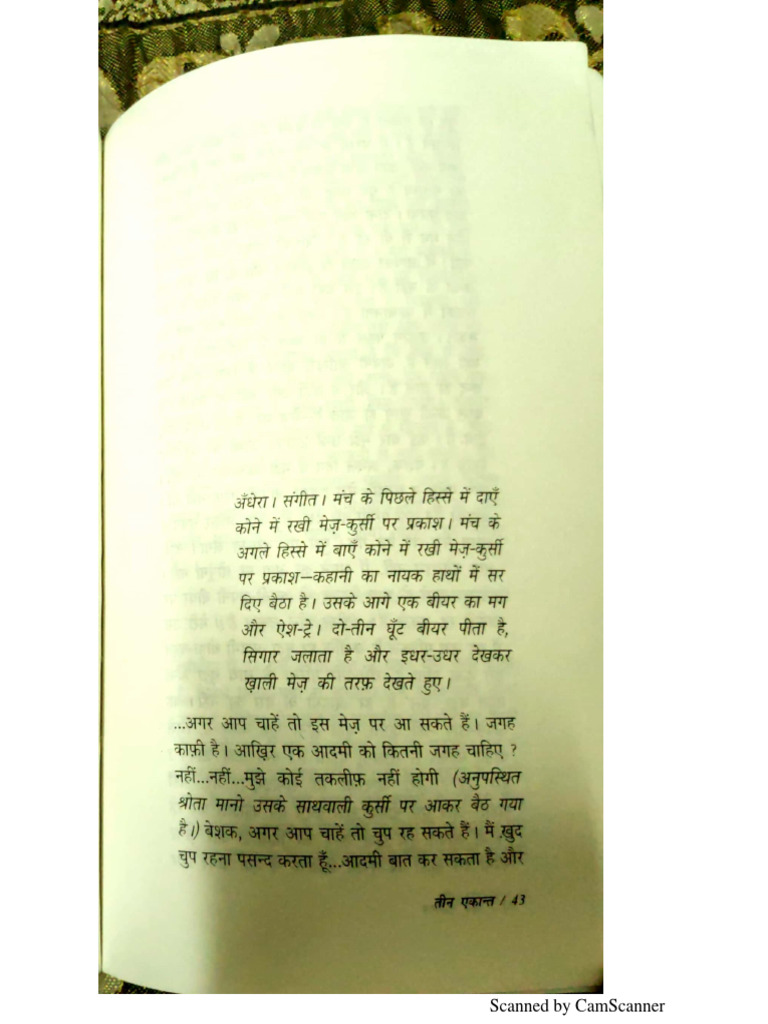 अँधेरा। संगीत। मंच के पिछले हिस्से में दाएँ
कोने में रखी मेज़-कुर्सी पर प्रकाश। मंच के
अगले हिस्से में बाएँ कोने में रखी मेज़-कुर्सी
पर प्रकाश—कहानी का नायक हाथों में सर
दिए बैठा है। उसके आगे एक बीयर का मग
और ऐश-ट्रे। दो-तीन घूँट बीयर पीता है,
सिगार जलाता है और इधर-उधर देखकर
ख़ाली मेज़ की तरफ़ देखते हुए।
...अगर आप चाहें तो इस मेज़ पर आ सकते हैं। जगह
काफ़ी है। आख़िर एक आदमी को कितनी जगह चाहिए ?
नहीं...नहीं...मुझे कोई तकलीफ़ नहीं होगी (अनुपस्थित
श्रोता मानो उसके साथवाली कुर्सी पर आकर बैठ गया
है।) बेशक, अगर आप चाहें तो चुप रह सकते हैं। मैं ख़ुद
चुप रहना पसन्द करता हूँ...आदमी बात कर सकता है और
तीन एकान्त / 43
Scanned by CamScanner